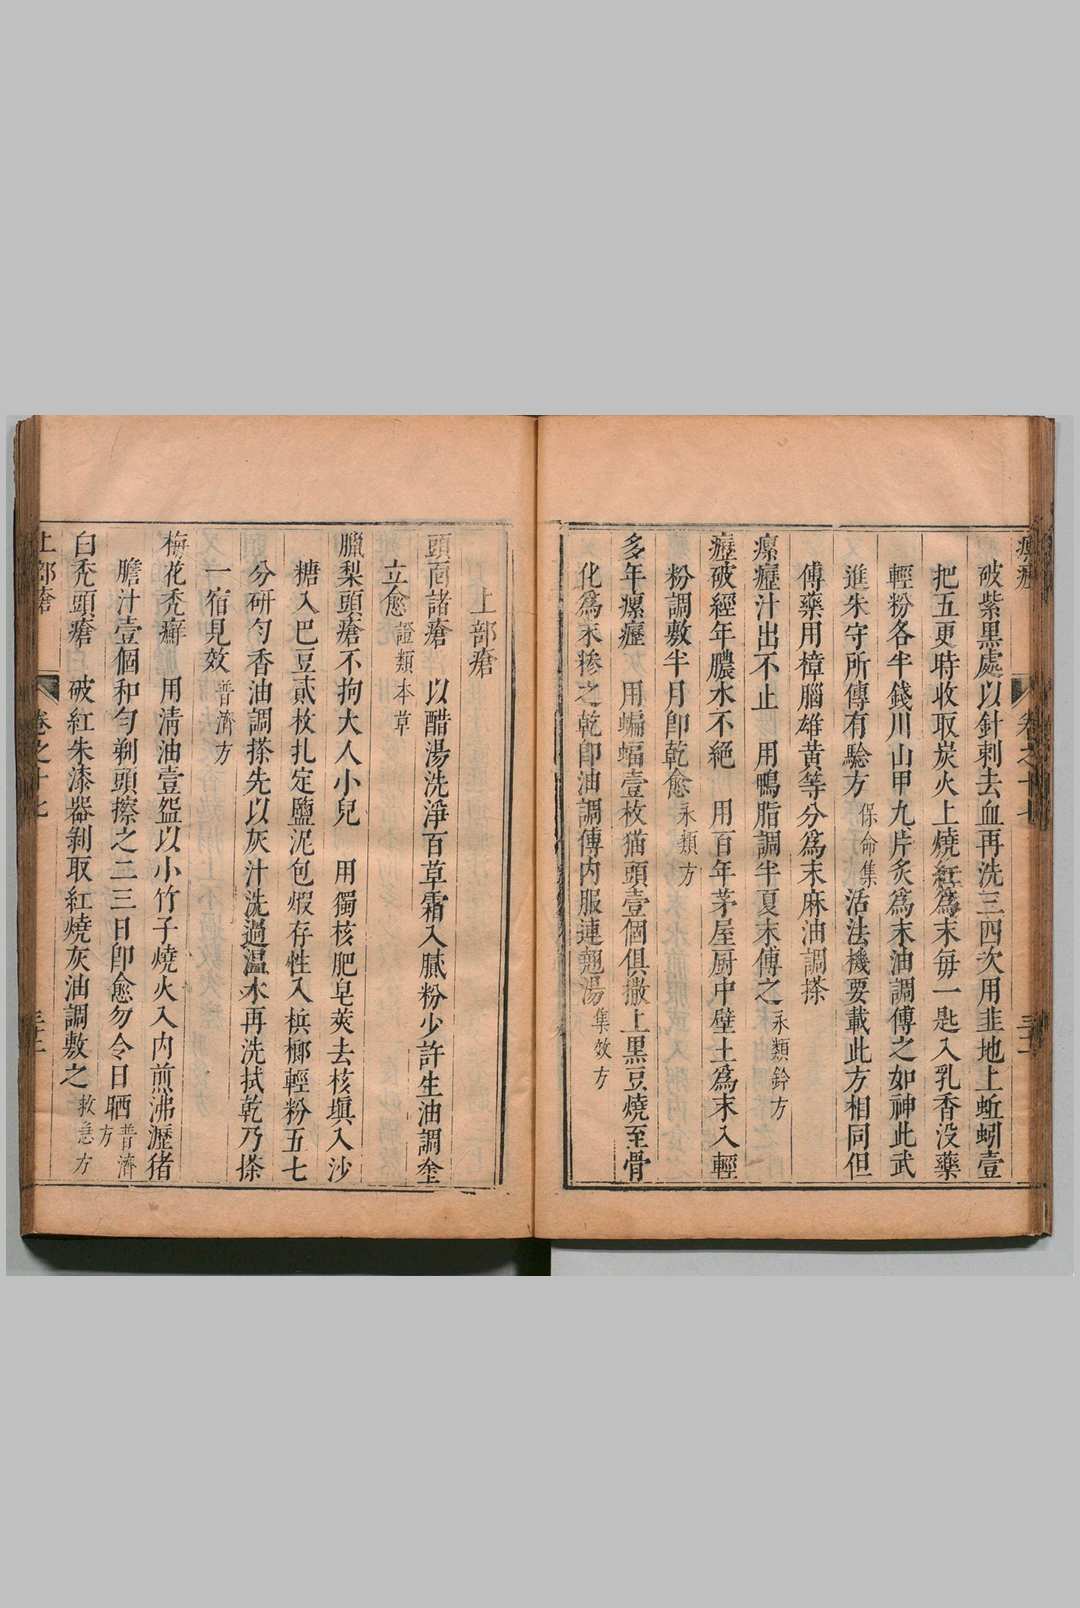 瘰癧
卷之十七
破紫黑處以針刺去血再洗三四次用韭地上蚯蚓壹
把五更時收取炭火上燒紅爲末每一匙入乳香没藥
輕粉各半錢川山甲九片炙爲末油調傅之如神此武
進朱守所傳有驗方 保命集 活法機要載此方相同但
傅藥用樟腦雄黃等分爲末麻油調搽
瘰癧汁出不止 用鴨脂調半夏末傅之 永類鈐方
癧破經年膿水不絕 用百年茅屋厨中壁土爲末入輕
粉調敷半月卽乾愈 永類方
多年瘰癧 用蝙蝠壹枚猫頭壹個俱撒上黑豆燒至骨
化爲末摻之乾卽油調傅内服連翹湯 集效方
上部瘡
頭面諸瘡 以醋湯洗淨百草霜入膩粉少許生油調塗
立愈 證類本草
臘梨頭瘡不拘大人小兒 用獨核肥皂莢去核塡入沙
糖入巴豆貳枚扎定鹽泥包煅存性入檳榔輕粉五七
分研勻香油調搽先以灰汁洗過溫水再洗拭乾乃搽
一宿見效 普濟方
梅花禿癬 用清油壹盌以小竹子燒火入内煎沸瀝猪
膽汁壹個和勻剃頭擦之二三日卽愈勿令日晒 普濟方
白禿頭瘡 破紅朱漆器剝取紅燒灰油調敷之 救急方
上部瘡
卷之十七
三十二